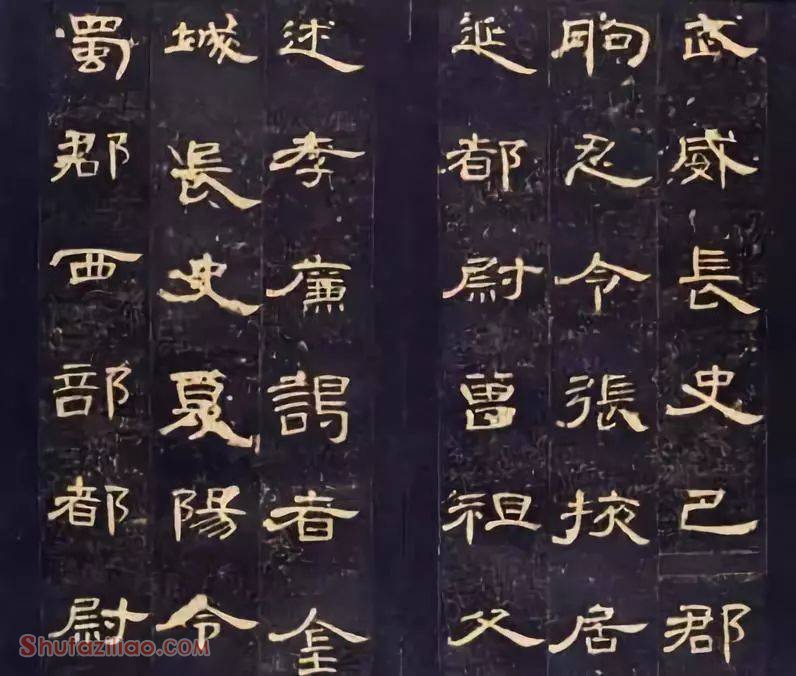 武威長史巴郡
朐忍令張掖居
延都尉曾祖父
述孝廉謁者金
城長史夏陽令
蜀郡西部都尉
Shufaziliao.COM